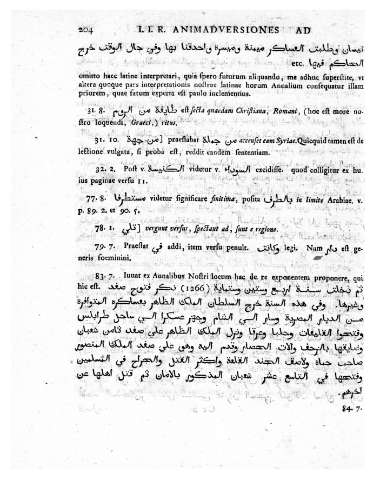 204 I. I. R. ANIMADVERSIONES AD
وطلبت العساكر ميمنة وميسرة واحدقنا بها وفي حال الوقت خرج
الحاكم فيها etc.
omitto haec latine interpretari, quia spero futurum aliquando, me adhuc superstite, ut
altera quoque pars interpretationis nostrae latinae horum Annalium consequatur illam
priorem, quae fatum experta est paulo inclementius.
31. 8. طايفة من الروم est secta quaedam Christiana, Romani, (hoc est more no-
stro loquendi, Graeci,) ritus.
31. 10. من جهة] praestabat من جملة accenset eam Syriae. Quicquid tamen est de
lectione vulgata, si proba est, reddit eandem sententiam.
32. 2. Post v. الكنيسة videtur v. السوداء excidisse. quod colligitur ex hu-
ius paginae versu 11.
77. 8. مستطرفا videtur significare finitima, posita بالطرف in limite Arabiae. v.
p. 89. 2. et 90. 5.
78. 1. تلي) vergunt versus, spectant ad, sunt e regione.
79. 7. Praestat في addi, item versu penult. وكانت legi. Nam بار est ge-
neris foeminini.
83. 7. Iuuat ex Annalibus Nostri locum hac de re exponentem proponere, qui
hic est. ثم دخلت سنة اربع وستين وستماية (1266) ذكر فتوح صفد
وغيرها. وفي هذه السنة خرج السلطان الملك الظاهر بعساكره المتوافرة
من الديار المصرية وسار الى الشام وجهز عسكرا الى ساحل طرابلس
ففتحوا القليعات وحلبا وعرقا ونزل الملك الظاهر على صفد ثامن شعبان
وضايقها بالزحف والات الحصار وقدم اليه وهو على صفد الملك المنصور
صاحب حماة ولاصق الجند القلعة وكثر القتل والجراح في المسلمين
وفتحها في التاسع عشر شعبان المذكور بالامان ثم قتل اهلها عن
اخرهم.
84. 7.